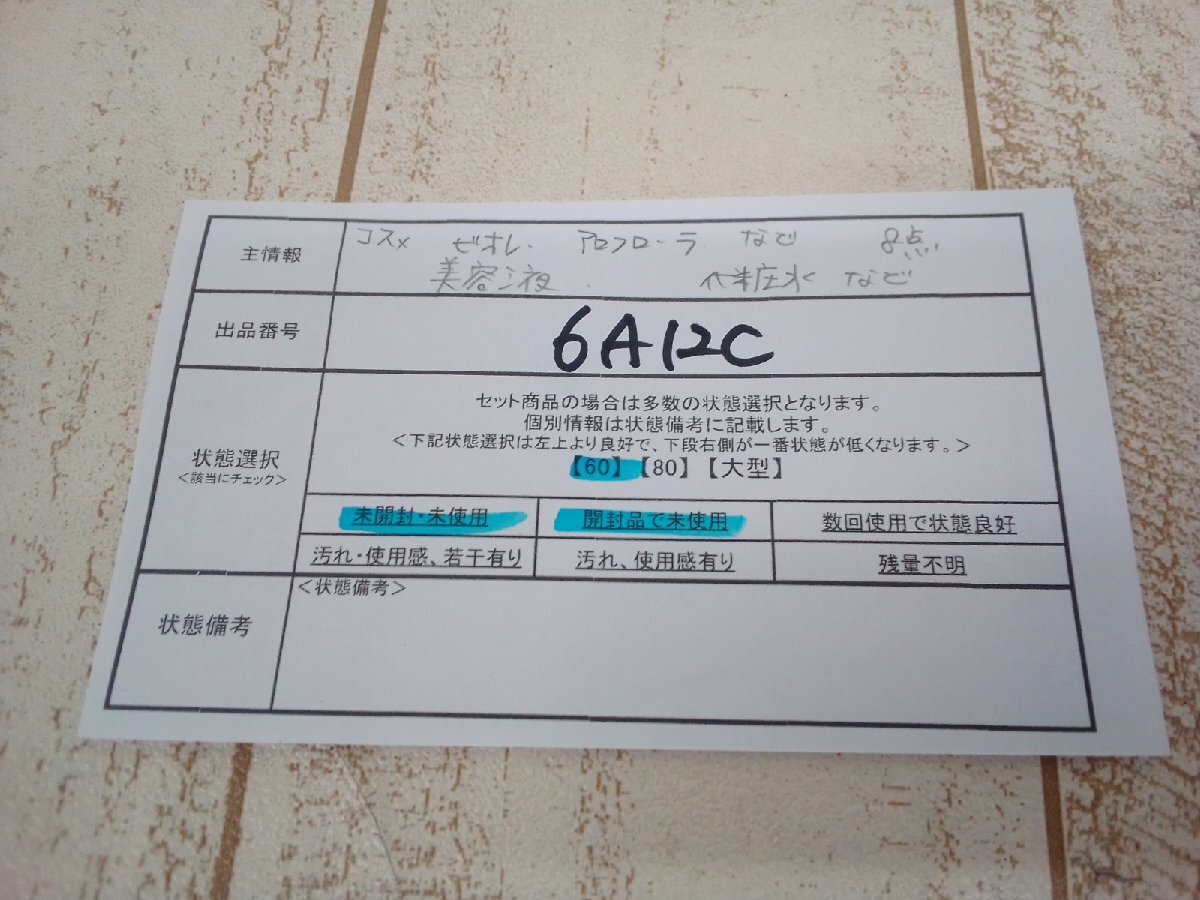 主情報
コスメ ビオレ. アロフローラ. など 8点
美容液 . 化粧水 など
出品番号
6A12C
状態選択
<該当にチェック>
セット商品の場合は多数の状態選択となります。
個別情報は状態備考に記載します。
<下記状態選択は左上より良好で、下段右側が一番状態が低くなります。>
【60】【80】【大型】
未開封・未使用 開封品で未使用 数回使用で状態良好
汚れ・使用感、若干有り 汚れ、使用感有り 残量不明
状態備考
<状態備考>